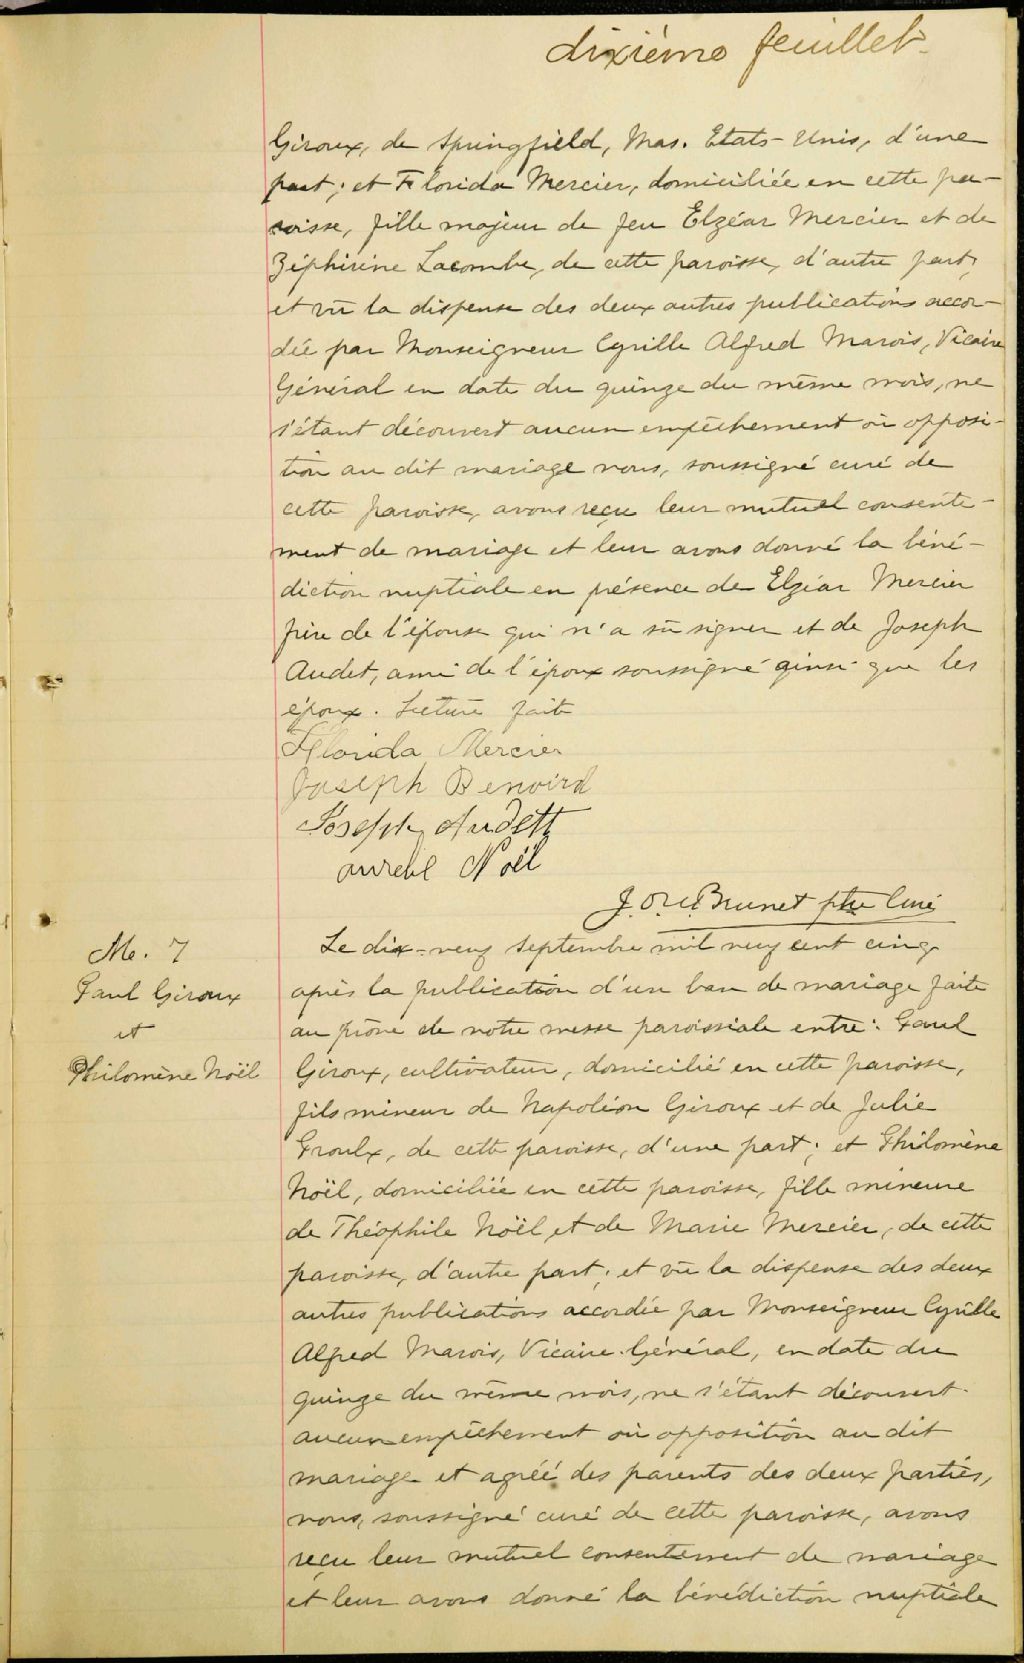 dixiéme feuillet
Giroux, de Springfield, Mas. Etats-Unis, d'une
part; et Florida Mercier, domiciliée en cette pa-
roisse, fille majeur de feu Elzéar Mercier et de
Zéphirine Lacombe, de cette paroisse, d'autre part,
et vû la dispense des deux autres publications accor-
dée par Monseigneur Cyrille Alfred Marois, Vicaire
Général en date du quinze du même mois, ne
s'étant découvert aucun empêchement où opposi-
tion au dit mariage nous, soussigné curé de
cette paroisse, avons reçu leur mutuel consente-
ment de mariage et leur avons donné la béné-
diction nuptiale en présence de Elzéar Mercier
frère de l'épouse qui n'a sû signer et de Joseph
Audet, ami de l'époux soussigné ainsi que les
époux. Lecture faite
Florida Mercier
Joseph Benoird
Joseph Audett
aurélil Noël
J. O. U. Brunet ptre Curé
Me. 7
Paul Giroux
et
Philomène Noël
Le dix-neuf septembre mil neuf cent cinq
après la publication d'un ban de mariage faite
au prône de notre messe paroissiale entre: Paul
Giroux, cultivateur, domicilié en cette paroisse,
fils mineur de Napoléon Giroux et de Julie
Groulx, de cette paroisse, d'une part; et Philomène
Noël, domiciliée en cette paroisse, fille mineure
de Théophile Noël et de Marie Mercier, de cette
paroisse, d'autre part; et vû la dispense des deux
autres publications accordée par Monseigneur Cyrille
Alfred Marois, Vicaire-Général, en date du
quinze du même mois, ne s'étant découvert
aucun empêchement où opposition au dit
mariage et agréé des parents des deux parties,
nous, soussigné curé de cette paroisse, avons
reçu leur mutuel consentement de mariage
et leur avons donné la bénédiction nuptiale